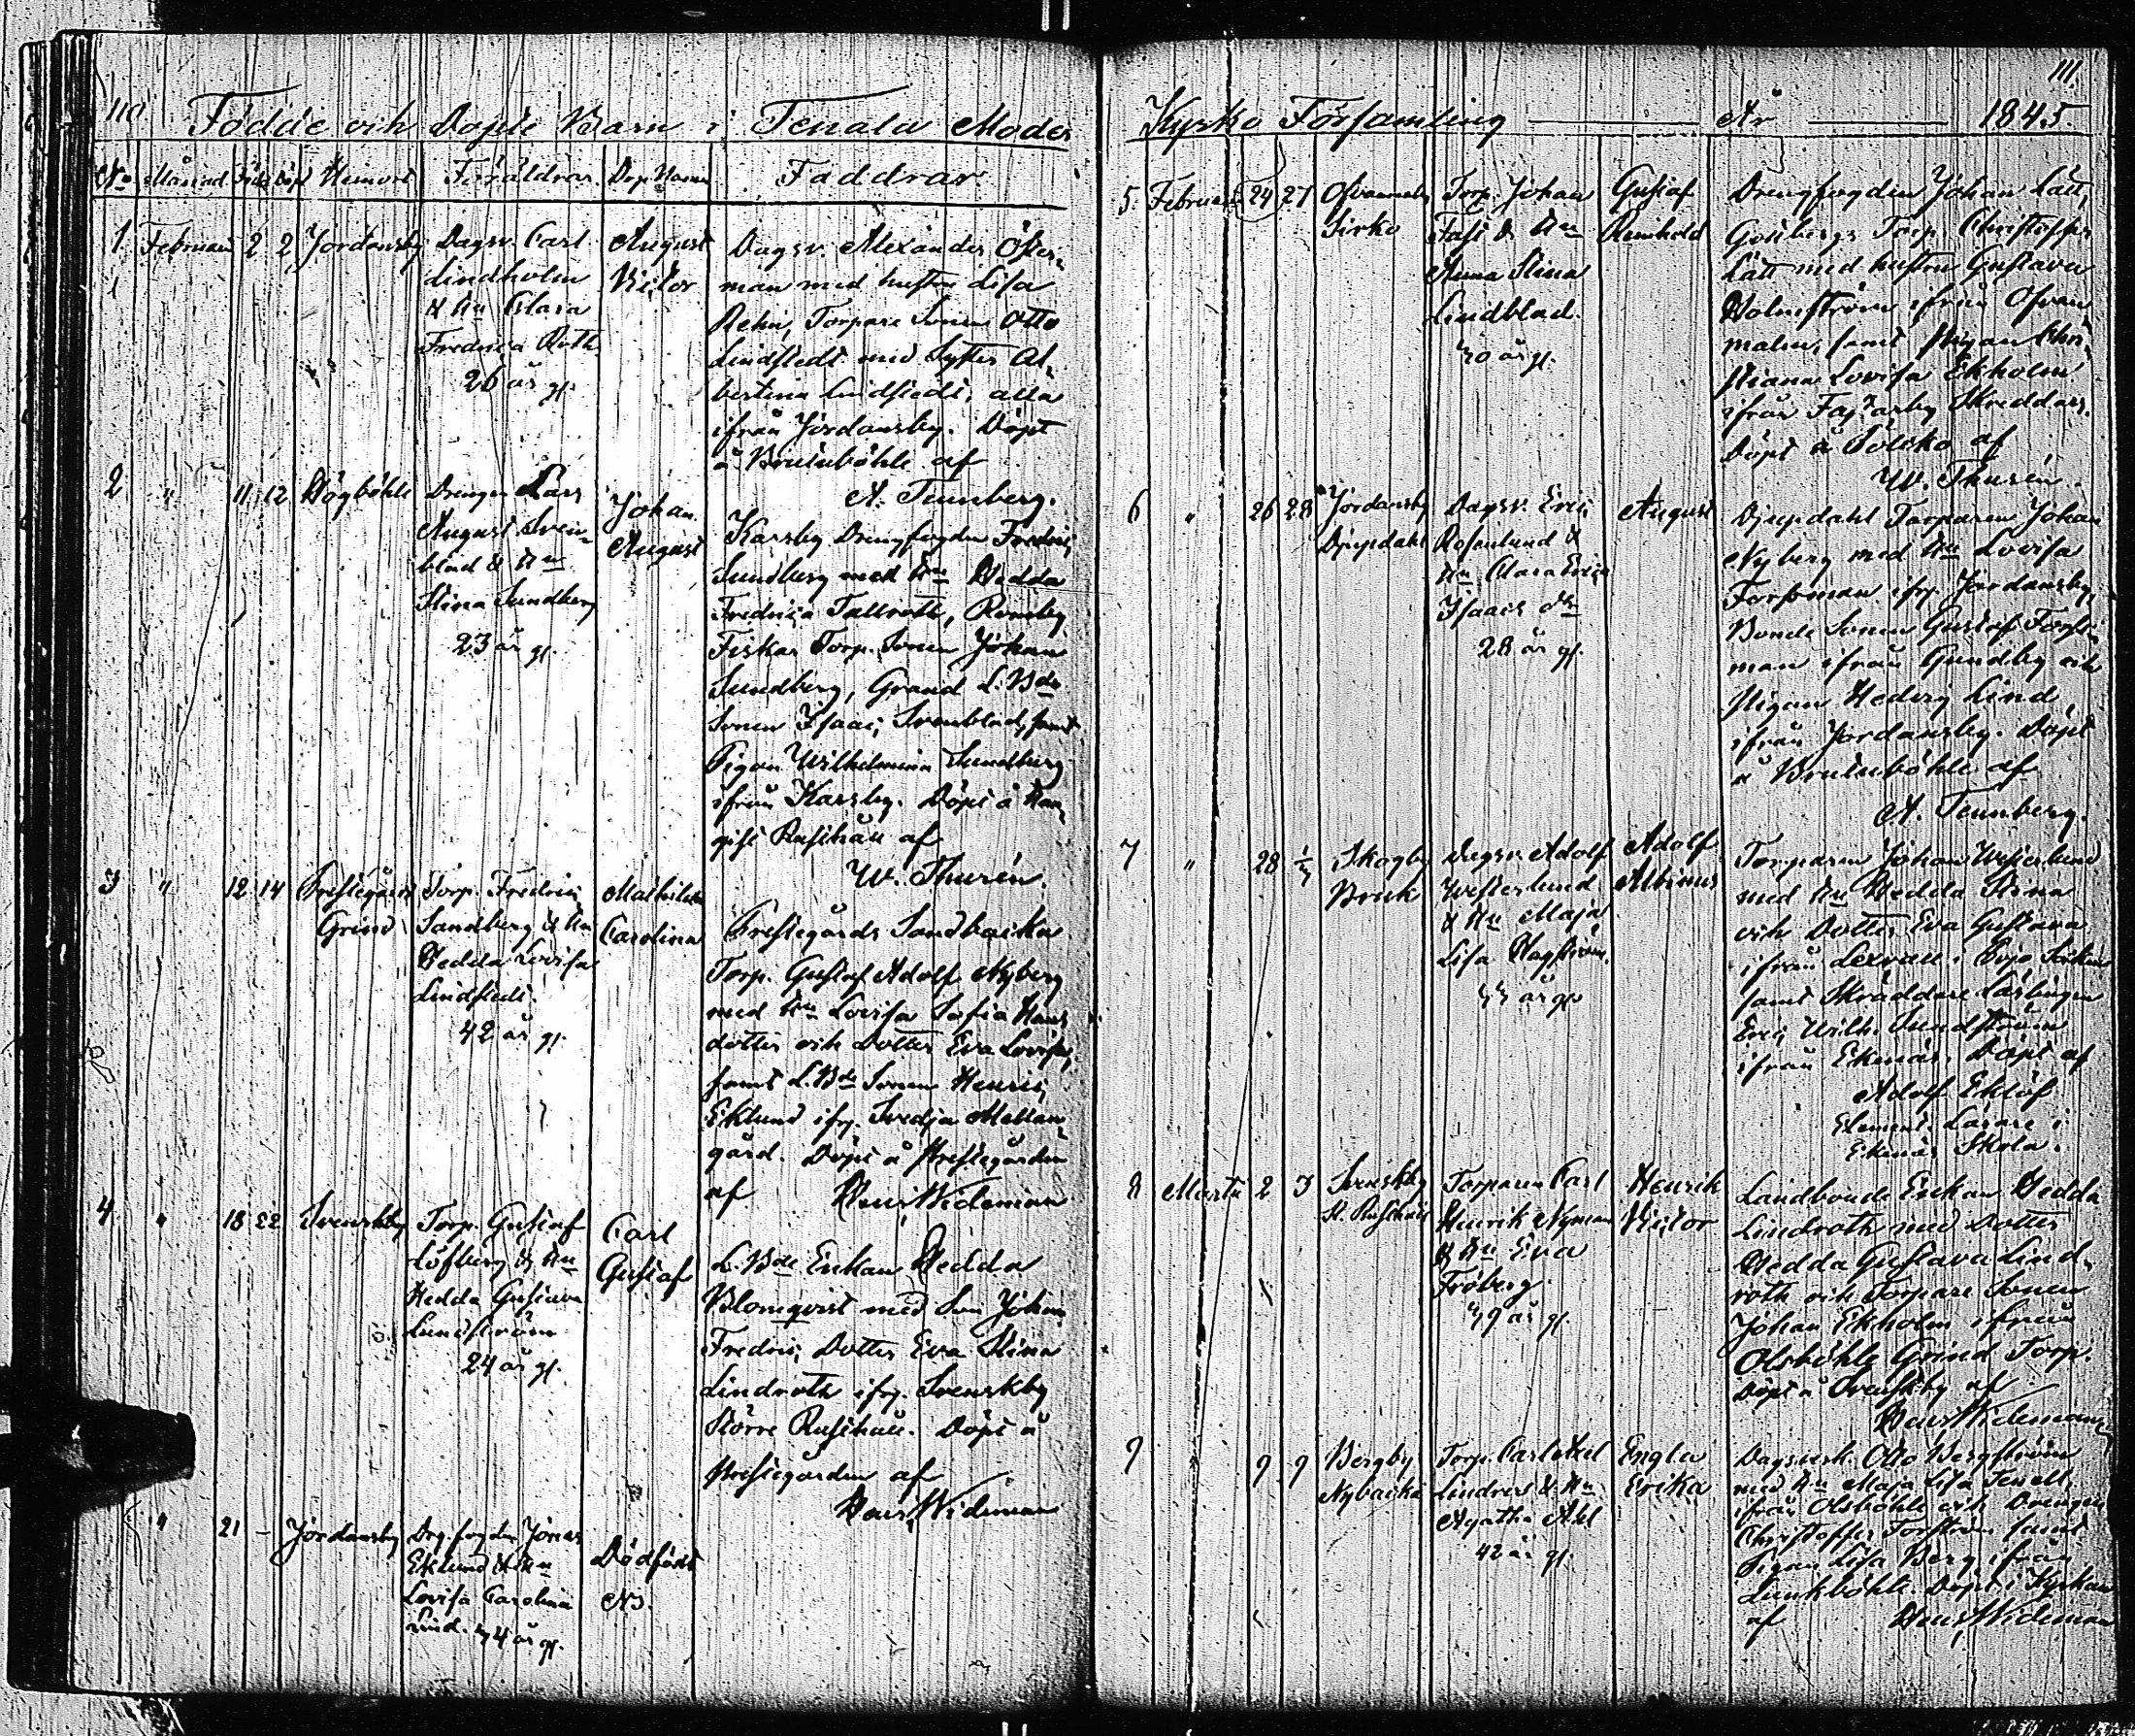 110
Födde och Döpte Barn i Tenala Moder
No Månad Född Döpt Hemort Föräldrar Dop Namn Faddrar
1. Februari 2 2 Jordansby
Dagsv. Carl
Lindholm
& Hu Clara
Fredrica Roth
26 år gl.
August
Victor
Dagsv. Alexander Öster-
man med hustru Lisa
Rehn, Torpare Sonen Otto
Lindstedt med Syster Al-
bertina Lindstedt, alla
ifrån Jordansby. Döpt
å Bruinböhle af
A. Tennberg.
2 " 11 12 Högböhle
Drengen Lars
August Sven-
blad & Hu
Stina Sundberg
23 år gl.
Johan
August
Karsby Drengfogden Fredric
Sundberg med Hu Hedda
Fredrica Tallroth, Römsby
Fiskar Torp. Sonen Johan
Sundberg, Grand L. Bde
Sonen Isaac Svenblad, samt
Pigan Wilhelmina Sundberg
ifrån Karsby. Döpt å Han-
gist Rusthåll af
W. Thurén.
3 " 12 14 Prestegårds
Grind
Torp. Fredric
Sandberg & Hu
Hedda Lovisa
Lindstedt.
42 år gl.
Mathilda
Carolina
Prestegårds Sandbacka
Torp. Gustaf Adolf Nyberg
med Hu Lovisa Sofia Hans
dotter och Dotter Eva Lovisa,
samt L. Bde Sonen Henric
Eklund ifr. Svedja Mellan-
gård. Döpt å Prestegården
af Henr. Wideman
4 " 18 22 Svenskby
Torp. Gustaf
Löfberg & Hu
Hedda Gustava
Lundström
24 år gl.
Carl
Gustaf
L. Bde Enkan Hedda
Blomqvist med Son Johan
Fredric, Dotter Eva Stina
Lindroth ifr. Svenskby
Större Rusthåll. Döpt å
Prestegården af
Henr. Wideman
" 21 - Jordansby
Drg. fogden Jonas
Eklund & Hu
Lovisa Carolina
Lind. 34 år gl.
Dödfödt
N3.
111.
Kyrko Församling År 1845.
5. Februari 24 27
Sirko
Torp. Johan
Fast & Hu
Anna Stina
Lindblad.
40 år gl.
Gustaf
Reinhold
Drengfogden Johan Lätt,
Torp. Christoffer
Lätt med hustru Gustava
Holmström ifrån Ofvan
malm, samt Pigan Chri-
stiana Lovisa Ekholm
ifrån Skreddars.
Döpt å af
W. Thurén.
6 " 26 28 Jordansby
Djupdahl
Dagsv. Eric
Rosenlund &
Hu Clara Erica
Isaacs dr
28 år gl.
August
Djupdahl Torparen Johan
Nyberg med Hu Lovisa
Forsman ifr. Jordansby,
Bonde Sonen Gustaf Fors-
man ifrån Gundby och
Pigan Hedvig Lind,
ifrån Jordansby. Döpt
å Bruinböhle af
A. Tennberg.
7 " 28 1/3 Skogby
Bruk
Dagsv. Adolf
Westerlund
& Hu Maja
Lisa Hagström.
år gl.
Adolf
Albinus
Torparen Johan Westerlund
med Hu Hedda Stina
och Dotter Eva Gustava
ifrån Lexvall i Pojo Socken
samt Skräddare Lärlingen
Eric Wilh. Sundström
ifrån Ekenäs. Döpt af
Adolf Eklöf
Element. Lärare i
Ekenäs Skola.
8 Martii 2 3 Svenskby
St. Rusthåll
Torparen Carl
Henrik Nyman
& Hu Eva
Fröberg.
39 år gl.
Henrik
Victor
Landbonde Enkan Hedda
Lindroth med Dotter
Hedda Gustava Lind-
roth och Torpare Sonen
Johan Ekholm ifrån
Olsböhle Grind Torp.
Döpt å Svenskby af
Henr. Wideman
9 " 9 9 Bergby
Nybacka
Torp. Carl Axel
Lindros & Hu
Agatha Ahl
42 år gl.
Engla
Erika
Dagsverk. Otto Bergström
med Hu Maja Lisa Tenell
ifrån Olsböhle och Drengen
Christoffer Forström samt
Pigan Lisa Berg ifrån
Lunkböhle. Döpt i Kyrkan
af Henr. Wideman